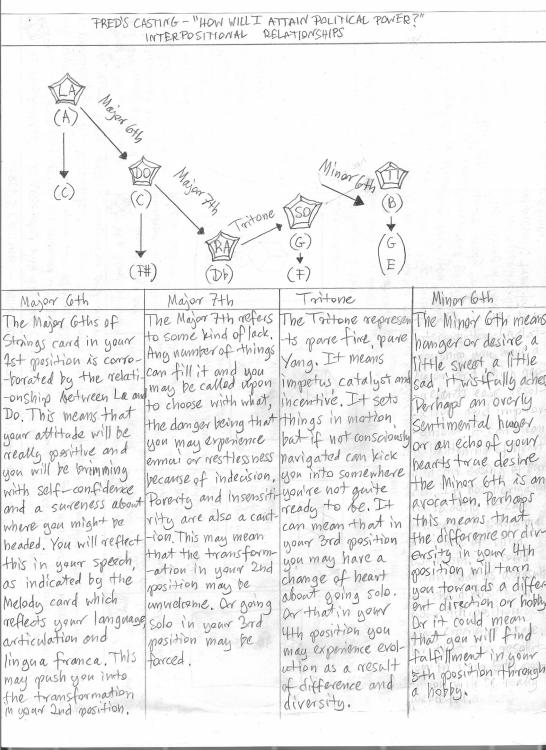 FRED'S CASTING - "HOW WILL I ATTAIN POLITICAL POWER?"
INTERPOSITIONAL RELATIONSHIPS
LA
(A)
(C)
Major 6th
DO
(C)
(F#)
Major 7th
RA
(Db)
Tritone
SO
(G)
(F)
Minor 6th
TI
(B)
(G
E)
Major 6th
The Major 6ths of
Strings card in your
1st position is corro-
borated by the relati-
-onship between La and
Do. This means that
your attitude will be
really positive and
you will be brimming
with self-confidence
and a sureness about
where you might be
headed. You will reflect
this in your speech,
as indicated by the
Melody card which
reflects your language,
articulation and
lingua franca. This
may push you into
the transformation
in your 2nd position.
Major 7th
The Major 7th refers
to some kind of lack.
Any number of things
can fill it and you
may be called upon
to choose with what,
the danger being that
you may experience
ennui or restlessness
because of indecision.
Poverty and insensiti-
vity are also a caut-
-ion. This may mean
that the transform-
-ation in your 2nd
position may be
unwelcome. Or going
solo in your 3rd
position may be
forced.
Tritone
The Tritone represen-
ts pure fire, pure
Yang. It means
impetus, catalyst and
incentive. It sets
things in motion,
but if not consciously
navigated can kick
you into somewhere
you're not quite
ready to be. It
can mean that in
your 3rd position
you may have a
change of heart
about going solo.
Or that in your
4th position you
may experience evol-
ution as a result
of difference and
diversity.
Minor 6th
The Minor 6th means
hunger or desire, a
little sweet a little
sad, it wistfully aches
Perhaps an overly
sentimental huger
or an echo of your
hearts true desire
the Minor 6th is an
avocation. Perhaps
this means that
the difference or div-
ersity in your 4th
position will turn
you towards a differ
ent direction or hobby
Or it could mean
that you will find
fulfillment in your
5th position through
a hobby.